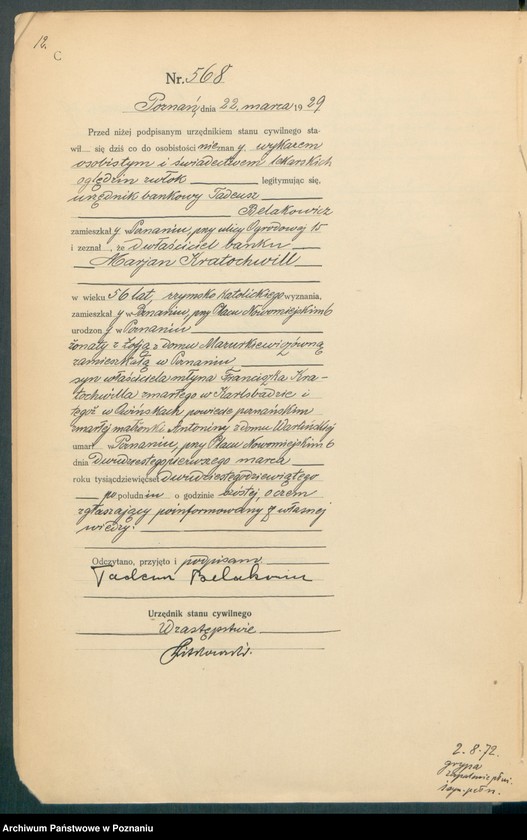 12.
C
Nr. 568
Poznań, dnia 22. marca 1929
Przed niżej podpisanym urzędnikiem stanu cywilnego sta-
wił się dziś co do osobistości nieznany, wykazem
osobistym i świadectwem lekarskich
oględzin zwłok legitymując się,
urzędnik bankowy Tadeusz
Belakowicz
zamieszkał y w Poznaniu, przy ulicy Ogrodowej 15
i zeznał, że właściciel banku
Marjan Kratochwill
w wieku 56 lat, rzymsko katolickiego wyznania,
zamieszkał y w Poznaniu, przy Placu Nowomiejskim 6
urodzon y w Poznaniu
żonaty z Zofją z domu Mazurkiewiczówną
zamieszkałą w Poznaniu
syn właściciela młyna Franciszka Kra-
tochwilla zmarłego w Karlsbadzie i
tegoż w Owińskach powiecie poznańskim
zmarłej małżonki Antoniny z domu
umarł w Poznaniu, przy Placu Nowomiejskim 6
dnia dwudziestego pierwszego marca
roku tysiącdziewięćset dwudziestego dziewiątego
po południu o godzinie szóstej, o czem
zgłaszający poinformowany z własnej
wiedzy.
Odczytano, przyjęto i podpisano
Tadeusz Belakowicz
Urzędnik stanu cywilnego
W zastępstwie
2.8.72.
grypa
zapalenie płuc
Archiwum Państwowe w Poznaniu